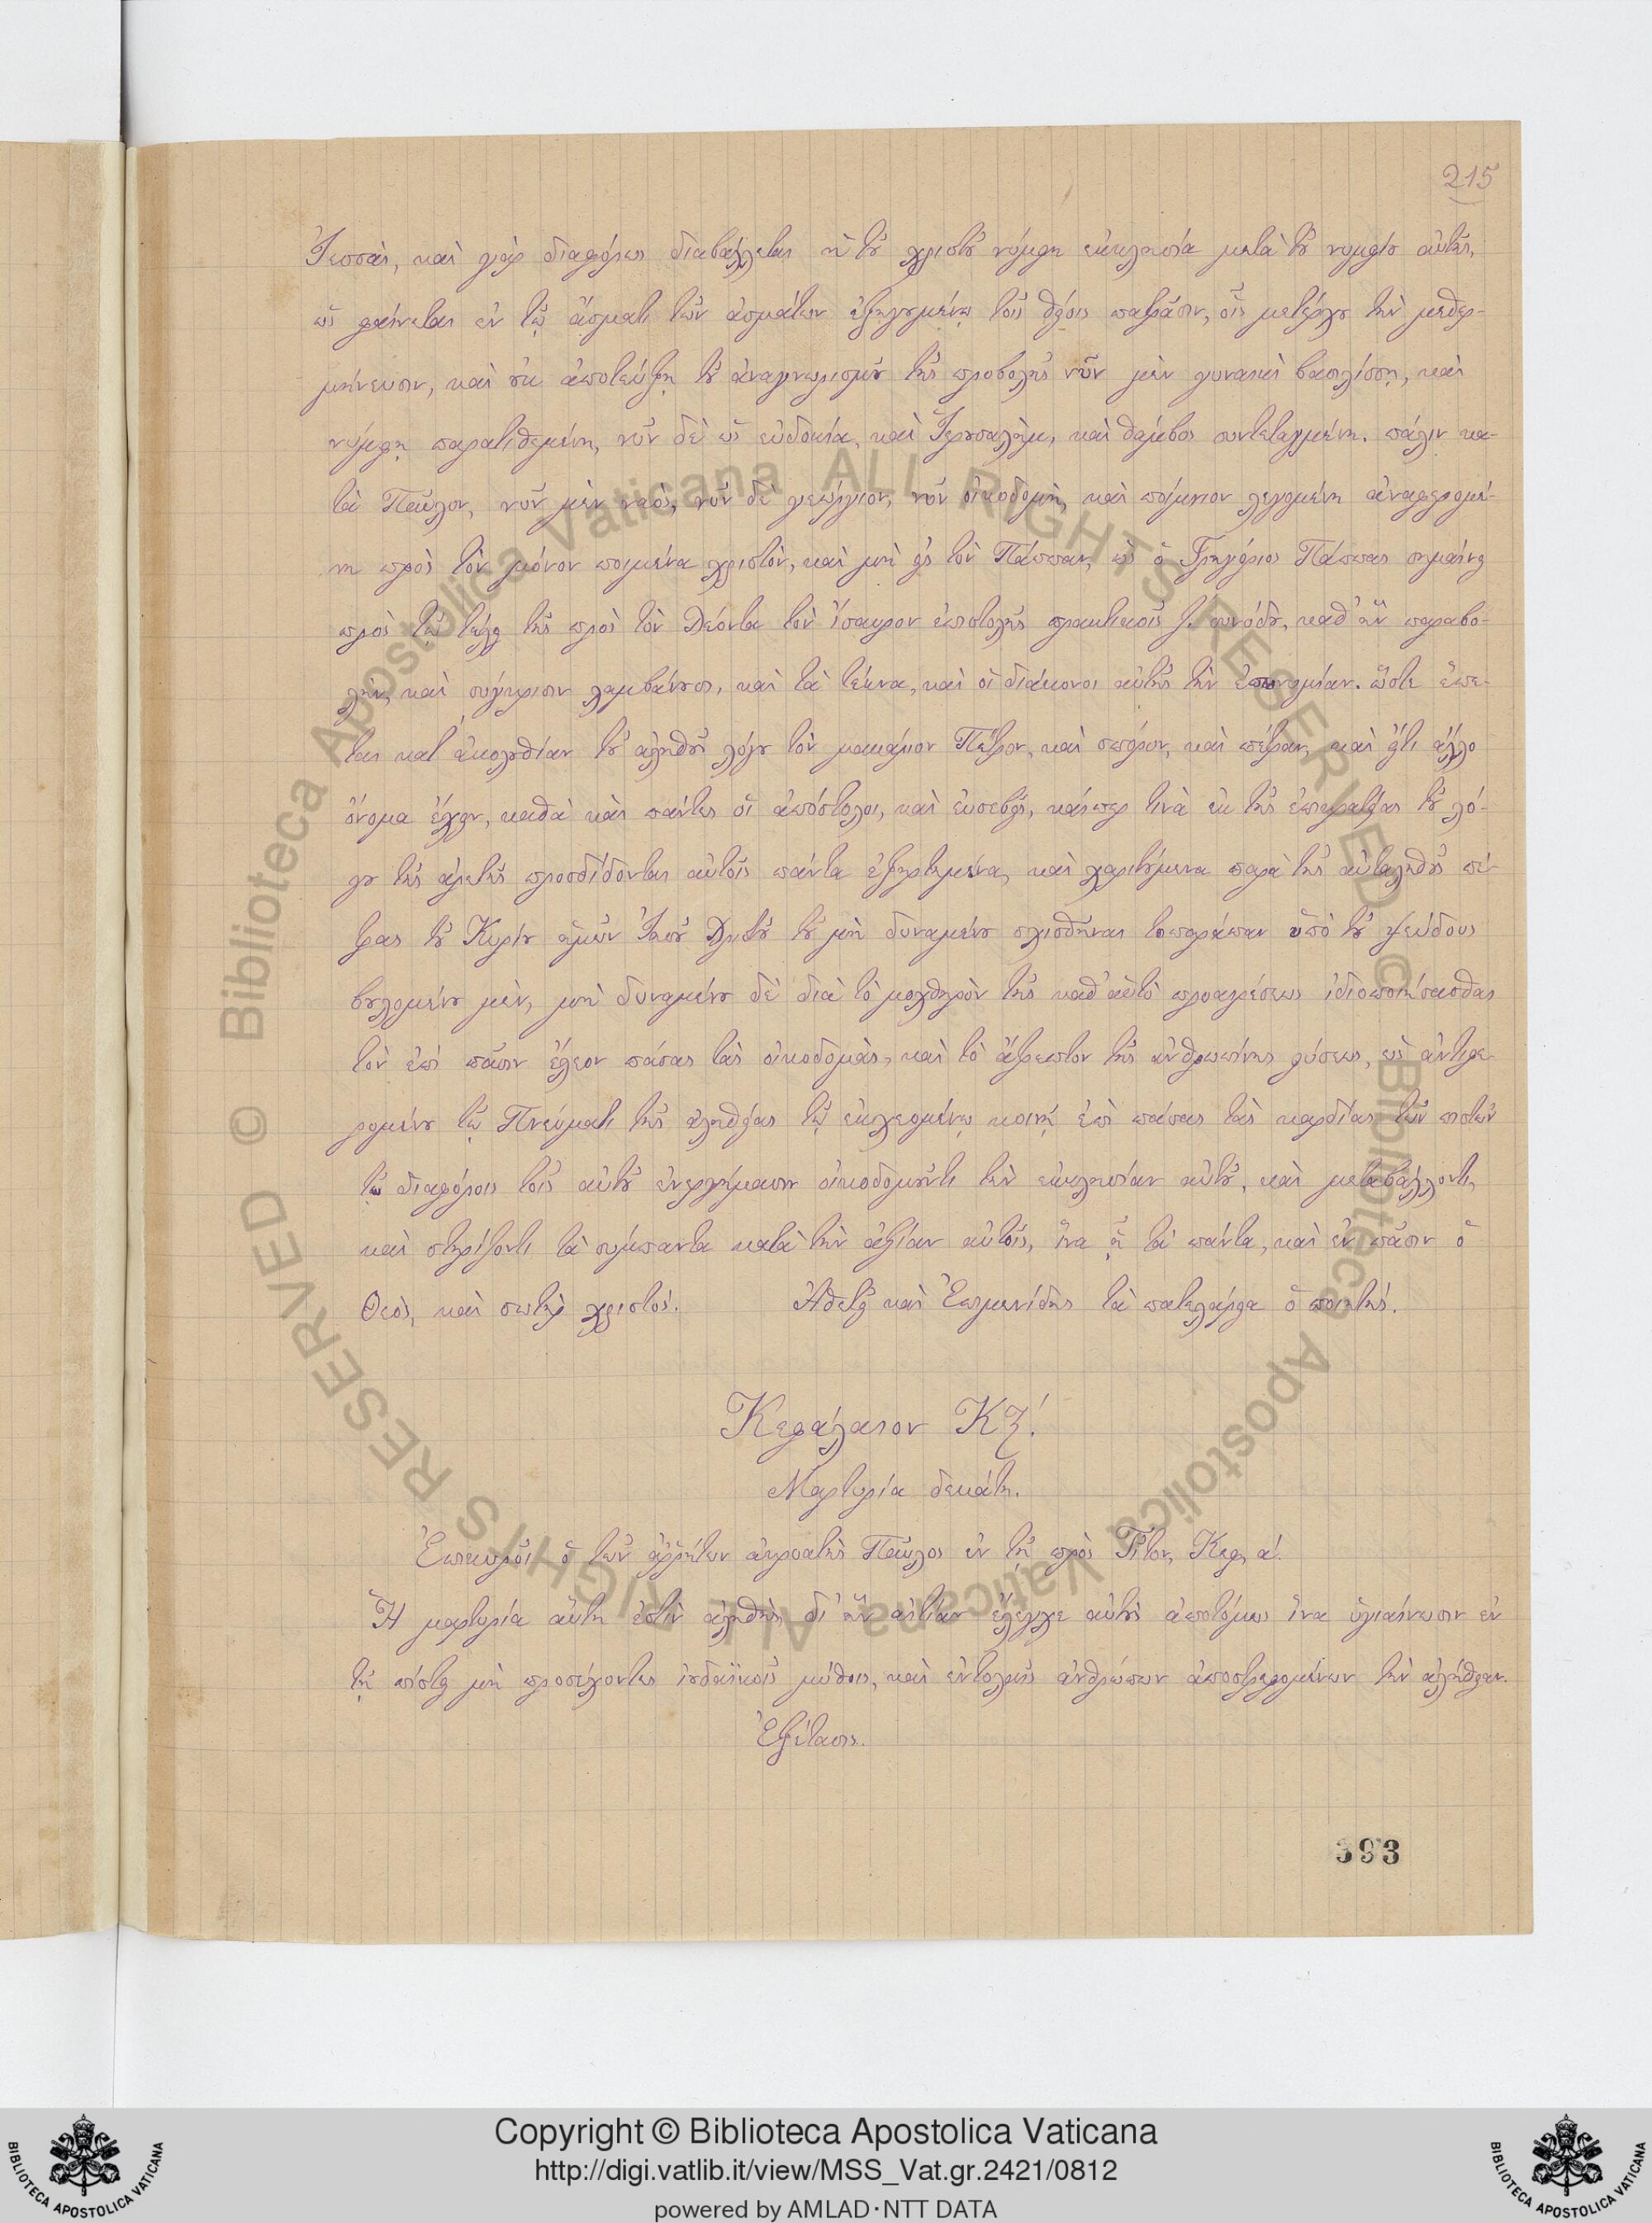 215
Ἰεσσαὶ, καὶ γὰρ διαφόρως διαβάλλεται ἡ τοῦ χριστοῦ νύμφη ἐκκλησία μετὰ τοῦ νυμφίου αὐτῆς,
ὡς φαίνεται ἐν τῷ ἄσματι τῶν ἀσμάτων ἐξηγουμένῳ τοῖς θείοις πατράσιν, οἷς μετέρχου τὴν μεθερ-
μήνευσιν, καὶ οὐκ ἀποτεύξῃ τοῦ ἀναγνωρισμοῦ τῆς προσβολῆς νῦν μὲν γυναικὶ βασιλίσσῃ, καὶ
νύμφῃ παρατιθεμένη, νῦν δὲ ὡς εὐδοκία, καὶ Ἱερουσαλὴμ, καὶ θάμβος συντεταγμένη. πάλιν κα-
τὰ Παῦλον, νῦν μὲν ναὸς, νῦν δὲ γεώργιον, νῦν οἰκοδομὴ, καὶ ποίμνιον λεγομένη ἀναφερομέ-
νη πρὸς τὸν μόνον ποιμένα χριστὸν, καὶ μὴ εἰς τὸν Πάππαν, ὡς ὁ Γρηγόριος Πάππας σημαίνει
πρὸς τῷ τέλει τῆς πρὸς τὸν Λέοντα τὸν Ἴσαυρον ἐπιστολῆς πρακτικοῖς ζ. συνόδου, καθ' ἣν παραβο-
λὴν, καὶ σύγκρισιν λαμβάνουσι, καὶ τὰ τέκνα, καὶ οἱ διάκονοι αὐτῆς τὴν ἐπωνυμίαν. ὥστε ἕπε-
ται κατ' ἀκολουθίαν τοῦ ἀληθοῦς λόγου τὸν μακάριον Πέτρον, καὶ σπόρον, καὶ πέτραν, καὶ ὅτι ἄλλο
ὄνομα ἔχειν, καθὰ καὶ πάντες οἱ ἀπόστολοι, καὶ εὐσεβεῖς, καίπερ τινὰ ἐκ τῆς ἐπικρατείας τοῦ λό-
γου τῆς ἀρετῆς προσδίδονται αὐτοῖς πάντα ἐξηρτημένα, καὶ χαριτούμενα παρὰ τῆς αὐταληθοῦς πέ-
τρας τοῦ Κυρίου ἡμῶν Ἰησοῦ Χριστοῦ τοῦ μὴ δυναμένου σχισθῆναι τοπαράπαν ὑπὸ τοῦ ψεύδους
βουλομένου μὲν, μὴ δυναμένου δὲ διὰ τὸ μοχθηρὸν τῆς καθ' αὑτὸ προαιρέσεως ἰδιοποιήσασθαι
τὸν ἐπὶ πᾶσιν ἔλεον πάσας τὰς οἰκοδομὰς, καὶ τὸ ἄτρεπτον τῆς ἀνθρωπίνης φύσεως, ὡς ἀντιφε-
ρομένου τῷ Πνεύματι τῆς ἀληθείας τῷ ἐκχεομένῳ κοινῇ ἐπὶ πάσας τὰς καρδίας τῶν πιστῶν
τῷ διαφόροις τοῖς αὐτοῦ ἐνεργήμασιν οἰκοδομοῦντι τὴν ἐκκλησίαν αὐτοῦ, καὶ μεταβάλλοντι,
καὶ στηρίζοντι τὰ σύμπαντα κατὰ τὴν ἀξίαν αὐτοῖς, ἵνα ᾖ τὰ πάντα, καὶ ἐν πᾶσιν ὁ
Θεὸς, καὶ σωτὴρ χριστός. Ἀθετεῖ καὶ Ἐπιμενίδης τὰ πατελάρεα ὁ ποιητής.
Κεφάλαιον ΚΖ΄.
Μαρτυρία δεκάτη.
Ἐπικυροῖ ὁ τῶν ἀῤῥήτων ἀκροατὴς Παῦλος ἐν τῇ πρὸς Τίτον, Κεφ. α΄.
Ἡ μαρτυρία αὕτη ἐστὶν ἀληθὴς, δι' ἣν αἰτίαν ἔλεγχε αὐτοὺς ἀποτόμως ἵνα ὑγιαίνωσιν ἐν
τῇ πίστει μὴ προσέχοντες ἰουδαϊκοῖς μύθοις, καὶ ἐντολαῖς ἀνθρώπων ἀποστρεφομένων τὴν ἀλήθειαν.
Ἐξέτασις.
393
© Biblioteca Apostolica Vaticana ALL RIGHTS RESERVED
© Biblioteca Apostolica Vaticana ALL RIGHTS RESERVED
Copyright © Biblioteca Apostolica Vaticana
http://digi.vatlib.it/view/MSS_Vat.gr.2421/0812
powered by AMLAD·NTT DATA
BIBLIOTECA APOSTOLICA VATICANA
BIBLIOTECA APOSTOLICA VATICANA